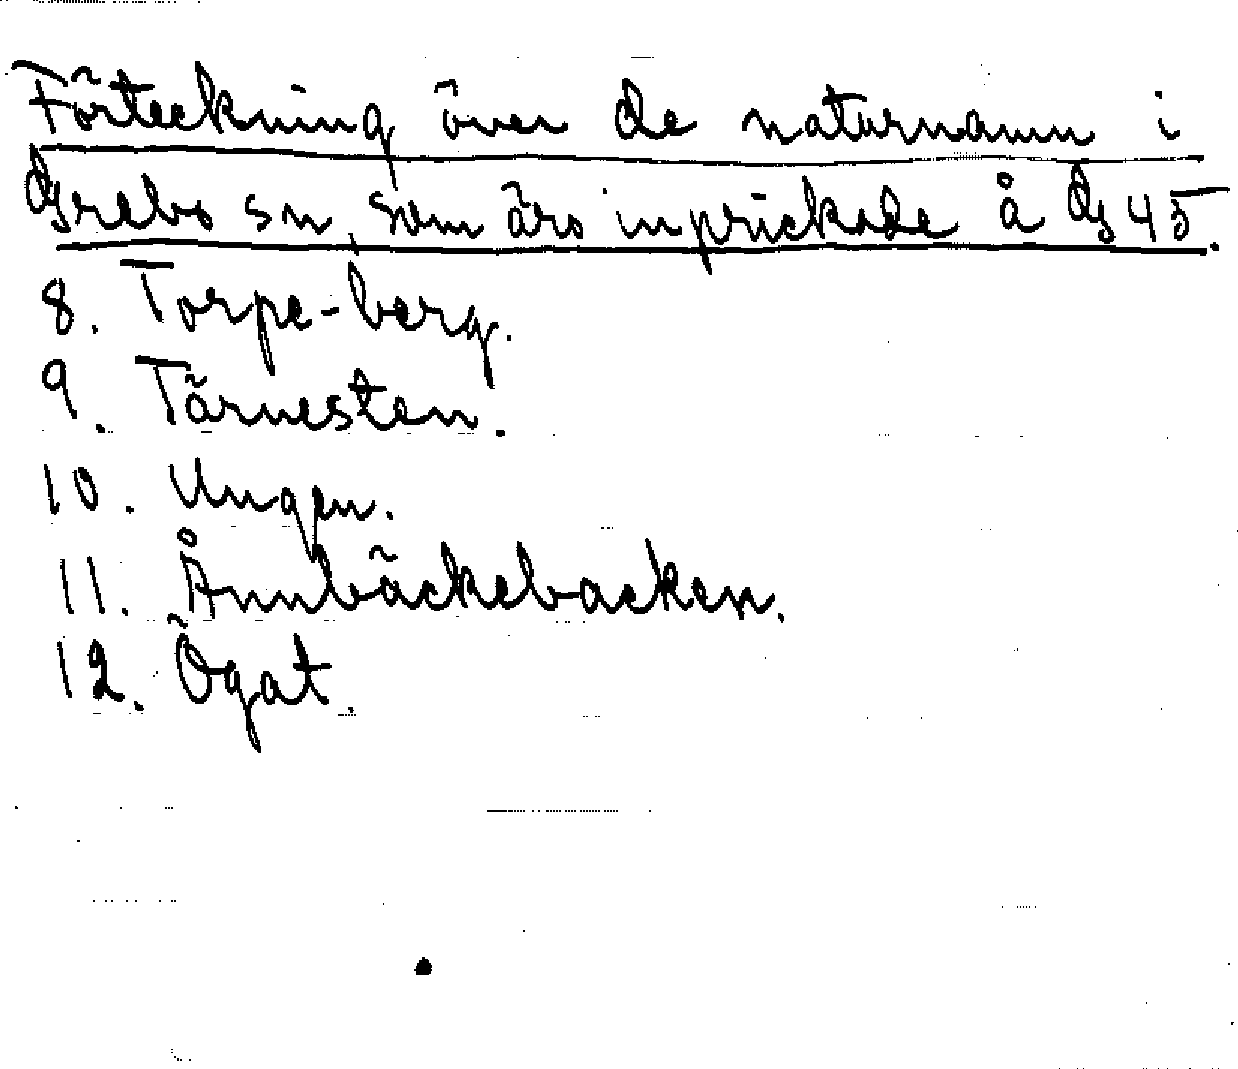 Förteckning över de naturnamn i
Grebo sn, som äro inprickade å G 45.
8. Torpe-berg.
9. Tärnesten.
10. Ungen.
11. Ånnbäckebacken.
12. Ögat.